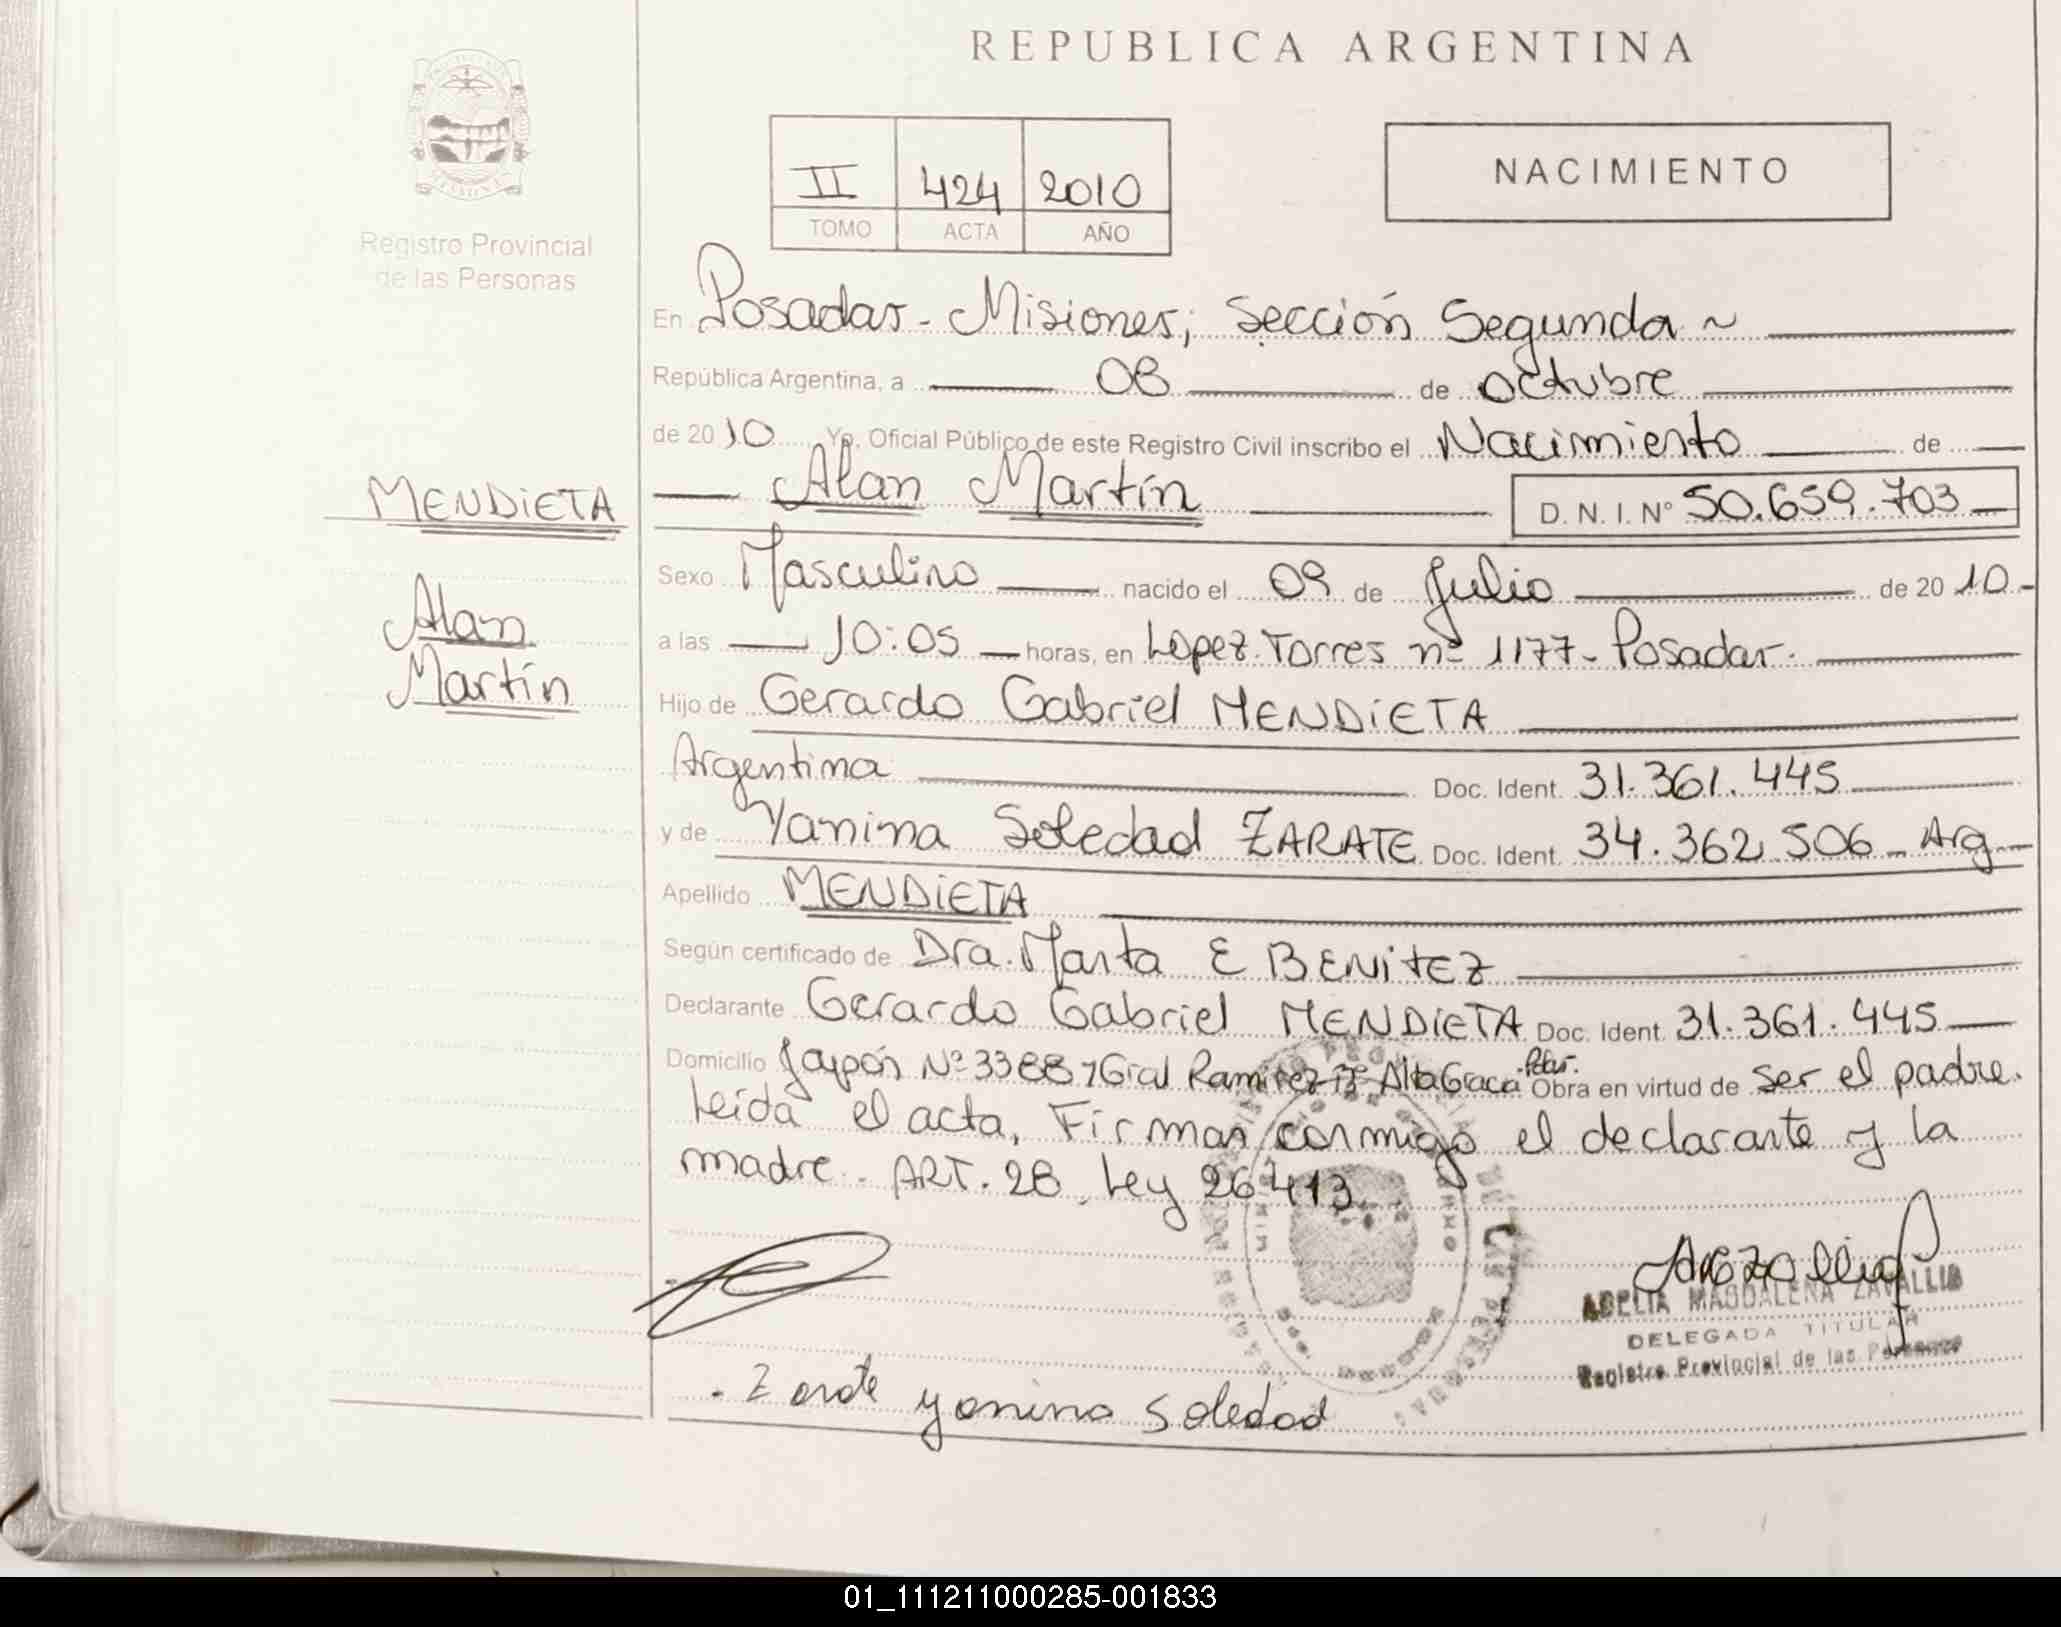 REPUBLICA ARGENTINA
II 424 2010
TOMO ACTA AÑO
NACIMIENTO
Registro Provincial
de las Personas
MENDiETA
Alan
Martín
En Posadas - Misiones, Sección Segunda ~
República Argentina, a 08 de octubre
de 2010 Yo, Oficial Público de este Registro Civil inscribo el Nacimiento de
Alan Martín D.N.I. N° 50.659.703
Sexo Masculino nacido el 09 de Julio de 2010.-
a las 10:05 horas, en Lopez Torres nº 1177 - Posadas.
Hijo de Gerardo Gabriel MENDiETA
Argentina Doc. Ident. 31.361.445
y de Yanina Soledad ZARATE Doc. Ident. 34.362.506 - Arg -
Apellido MENDiETA
Según certificado de Dra. Marta E BENiTEZ
Declarante Gerardo Gabriel MENDiETA Doc. Ident. 31.361.445
Domicilio Jaypón Nº 3388 Gral Ramirez Bº Alta Gracia Pdas. Obra en virtud de ser el padre.
Leída el acta, Firman conmigo el declarante y la
madre. ART. 28. Ley 26413
ADELIA MAGDALENA ZAVALLIA
DELEGADA TITULAR
Registro Provincial de las Personas
. Zarate yanina Soledad
01_111211000285-001833